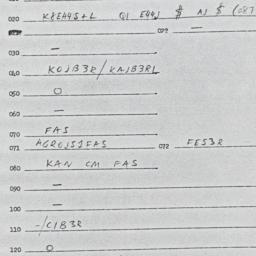 020 K8EH4S+L QI E44J $ AJ $ (087
022 —
030 —
040 KOJB3R/KAJB3RL
050 O
060 —
070 FAS
071 AGROJSIFAS 072 FES3R
080 KAN CM FAS
090 —
100 —
110 -/CIB3R
120 O